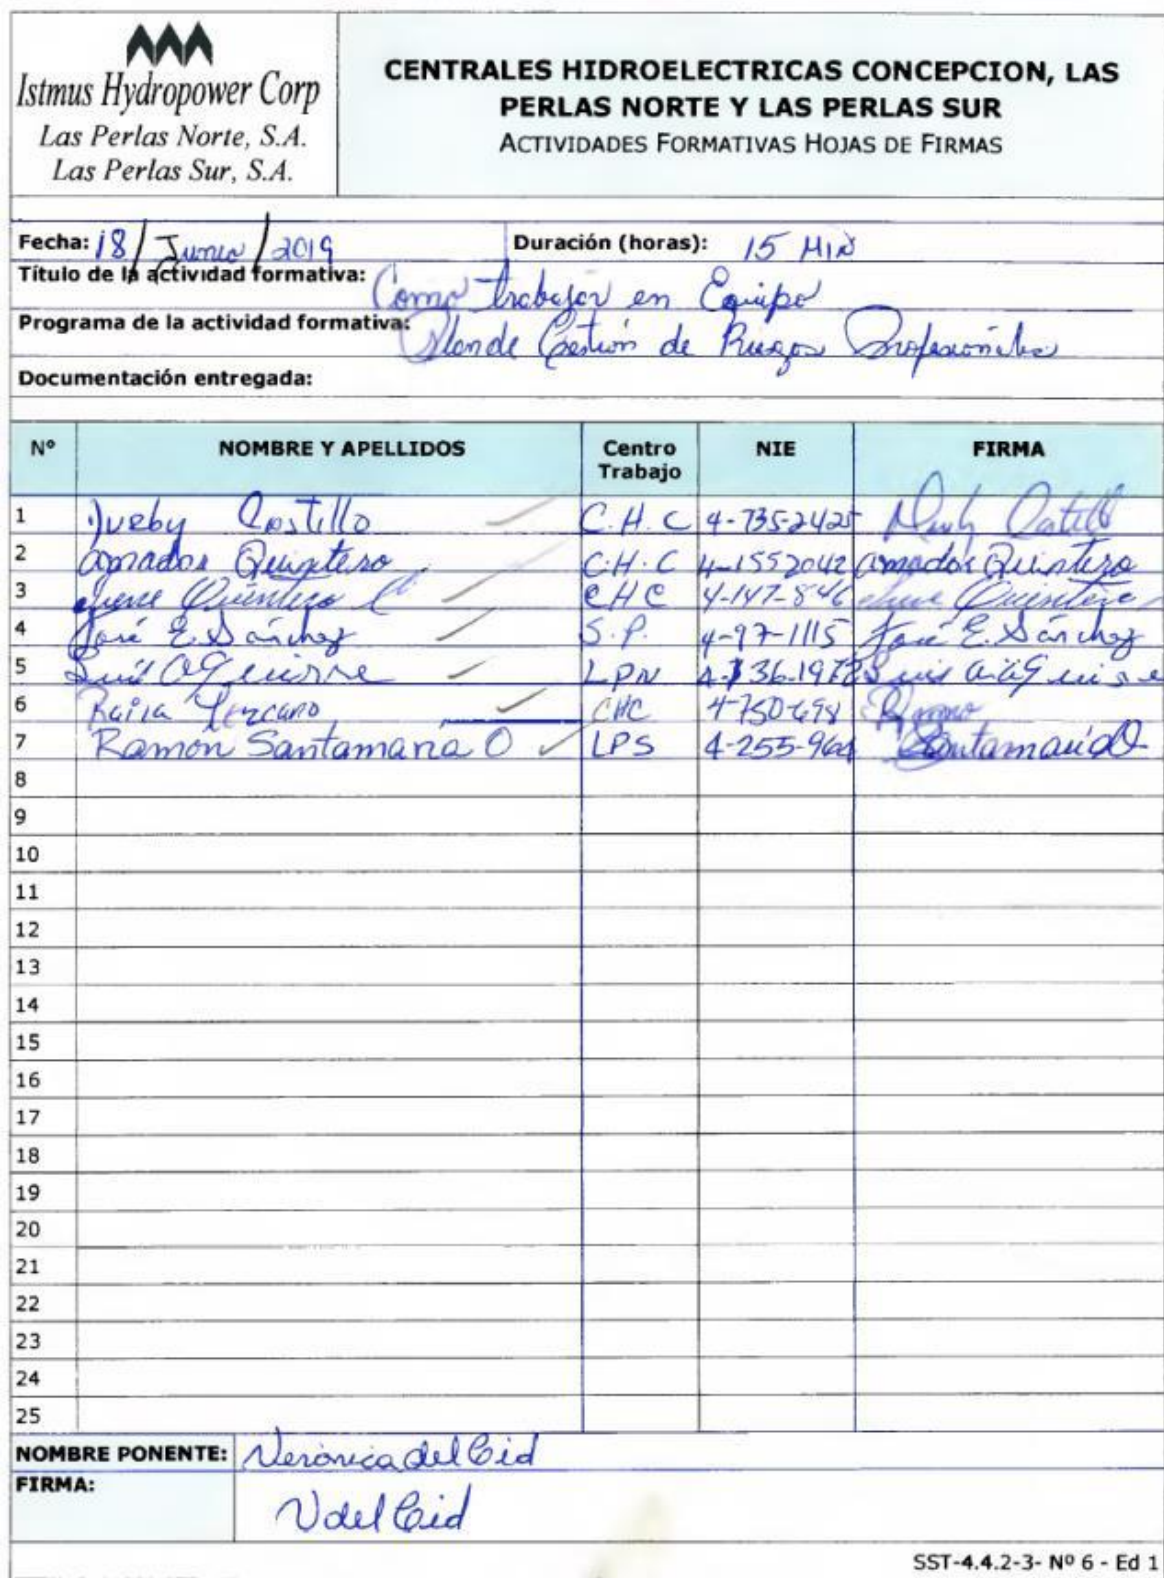 Istmus Hydropower Corp
Las Perlas Norte, S.A.
Las Perlas Sur, S.A.
CENTRALES HIDROELECTRICAS CONCEPCION, LAS
PERLAS NORTE Y LAS PERLAS SUR
ACTIVIDADES FORMATIVAS HOJAS DE FIRMAS
Fecha: 18/Junio/2019 Duración (horas): 15 MIN
Título de la actividad formativa: Como trabajar en Equipo
Programa de la actividad formativa: Gestión de Riesgos Profesionales
Documentación entregada:
Nº NOMBRE Y APELLIDOS Centro Trabajo NIE FIRMA
1 Castillo C.H.C 4-735-2425
2 Amador Quintero C.H.C 4-1552042 Amador Quintero
3 Quintero CHC 4-147-846 Quintero
4 José E. Sánchez S.P. 4-97-1115 José E. Sánchez
5 Luis LPN Luis
6 CHC
7 Ramón Santamaría O LPS Santamaría O
8
9
10
11
12
13
14
15
16
17
18
19
20
21
22
23
24
25
NOMBRE PONENTE: Verónica del Cid
FIRMA: V del Cid
SST-4.4.2-3- Nº 6 - Ed 1